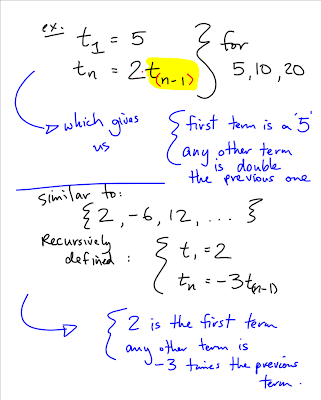 ex:
t₁ = 5 } for
tₙ = 2t₍ₙ₋₁₎ } 5, 10, 20
which gives us
{ first term is a '5'
any other term
is double
the previous one
similar to:
{2, -6, 12, ... }
Recursively
defined :
{ t₁ = 2
tₙ = -3t₍ₙ₋₁₎
{ 2 is the first term
any other term is
-3 times the previous
term.